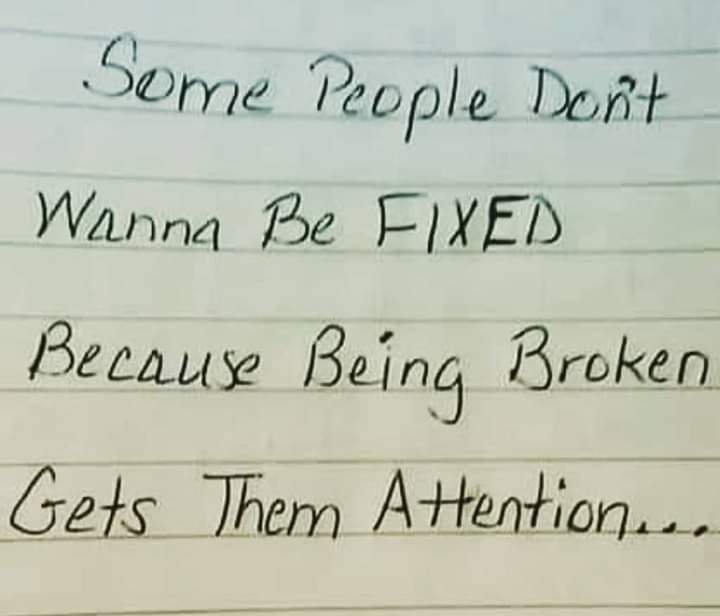 Some People Don't
Wanna Be FIXED
Because Being Broken
Gets Them Attention...